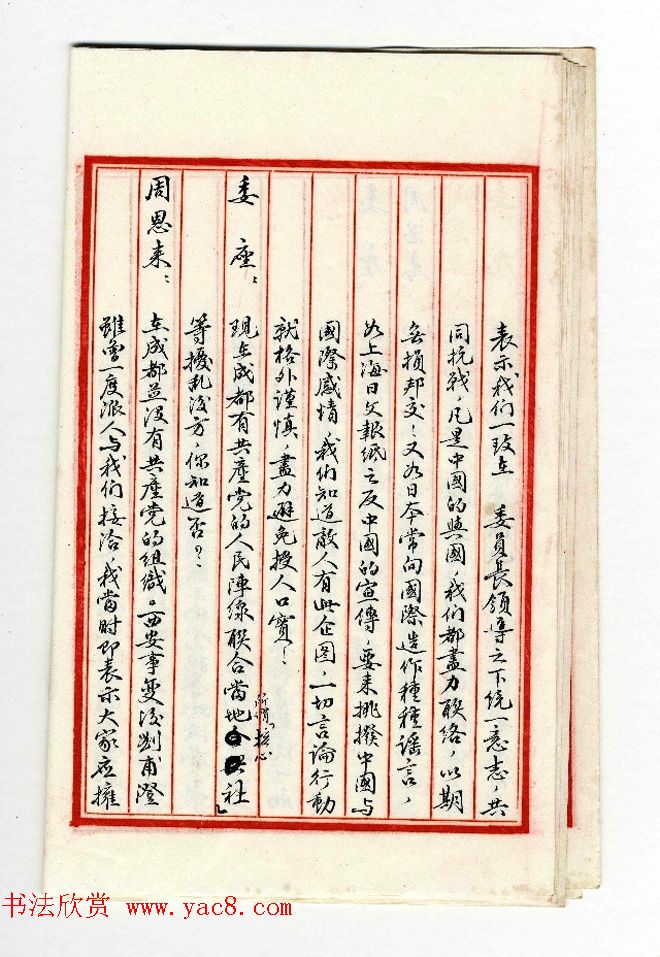 表示我们一致在　委員長領導之下統一意志，共
同抗戰，凡是中國的與國，我们都盡力联絡，以期
無損邦交！又如日本常向國際造作種種谣言，
如上海日文報紙之反中國的宣傳，要来挑撥中國与
國際感情，我们知道敵人有此企图，一切言論行動
就格外谨慎，盡力避免授人口實！
委　座：現在成都有共產党的人民陣線联合當地所謂「核心社」
等擾乱後方，你知道否？
周恩来：在成都並没有共產党的组織。西安事变後刘甫澄
雖曾一度派人与我们接洽，我當时即表示大家应擁
书法欣赏 www.yac8.com